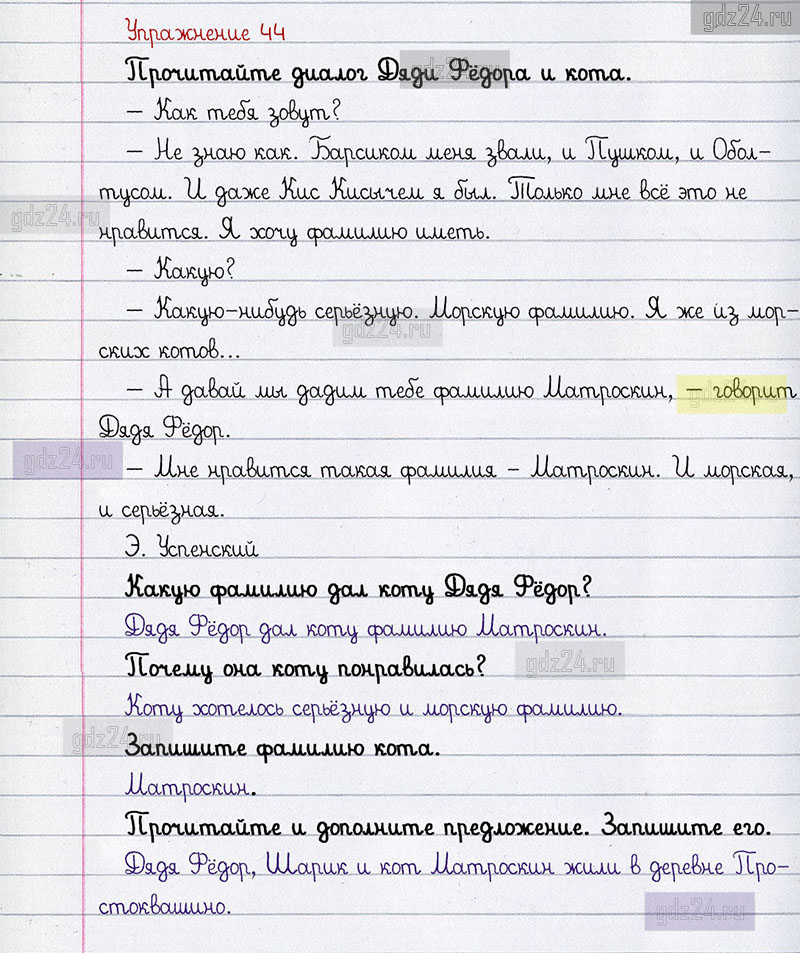 gdz24.ru
Упражнение 44
Прочитайте диалог Дяди Фёдора и кота.
gdz24.ru
– Как тебя зовут?
– Не знаю как. Барсиком меня звали, и Пушком, и Обол-
тусом. И даже Кис Кисычем я был. Только мне всё это не
gdz24.ru
нравится. Я хочу фамилию иметь.
– Какую?
– Какую-нибудь серьёзную. Морскую фамилию. Я же из мор-
gdz24.ru
ских котов...
– А давай мы дадим тебе фамилию Матроскин, – говорит
gdz24.ru
Дядя Фёдор.
gdz24.ru
– Мне нравится такая фамилия – Матроскин. И морская,
и серьёзная.
Э. Успенский
Какую фамилию дал коту Дядя Фёдор?
Дядя Фёдор дал коту фамилию Матроскин.
Почему она коту понравилась?
gdz24.ru
Коту хотелось серьёзную и морскую фамилию.
gdz24.ru
Запишите фамилию кота.
Матроскин.
Прочитайте и дополните предложение. Запишите его.
Дядя Фёдор, Шарик и кот Матроскин жили в деревне Про-
стоквашино.
gdz24.ru